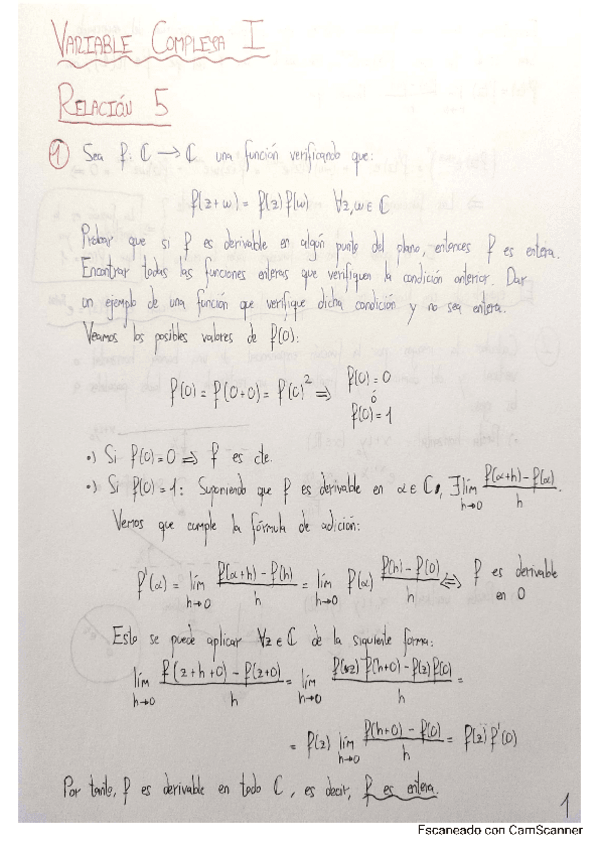 VARIABLE COMPLEJA I
RELACIÓN 5
① Sea f: ℂ → ℂ una función verificando que:
f(z+w) = f(z) f(w) ∀z,w ∈ ℂ
Probar que si f es derivable en algún punto del plano, entonces f es entera.
Encontrar todas las funciones enteras que verifiquen la condición anterior. Dar
un ejemplo de una función que verifique dicha condición y no sea entera.
Veamos los posibles valores de f(0):
f(0) = f(0+0) = f(0)² ⇒ f(0) = 0
ó
f(0) = 1
•) Si f(0) = 0 ⇒ f es cte.
•) Si f(0) = 1: Suponiendo que f es derivable en α ∈ ℂ, ∃ lím h→0 (f(α+h) - f(α))/h.
Vemos que cumple la fórmula de adición:
f'(α) = lím h→0 (f(α+h) - f(h))/h = lím h→0 f(α) (f(h) - f(0))/h ⇔ f es derivable
en 0
Esto se puede aplicar ∀z ∈ ℂ de la siguiente forma:
lím h→0 (f(z+h+0) - f(z+0))/h = lím h→0 (f(z) f(h+0) - f(z) f(0))/h =
= f(z) lím h→0 (f(h+0) - f(0))/h = f(z) f'(0)
Por tanto, f es derivable en todo ℂ, es decir, f es entera.
1
Escaneado con CamScanner